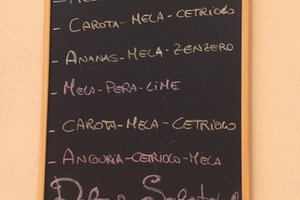 - CAROTA-MELA-CETRIOLO
- ANANAS-MELA-ZENZERO
- MELA-PERA-LIME
- CAROTA-MELA-CETRIOLO
- ANGURIA-CETRIOLO-MELA